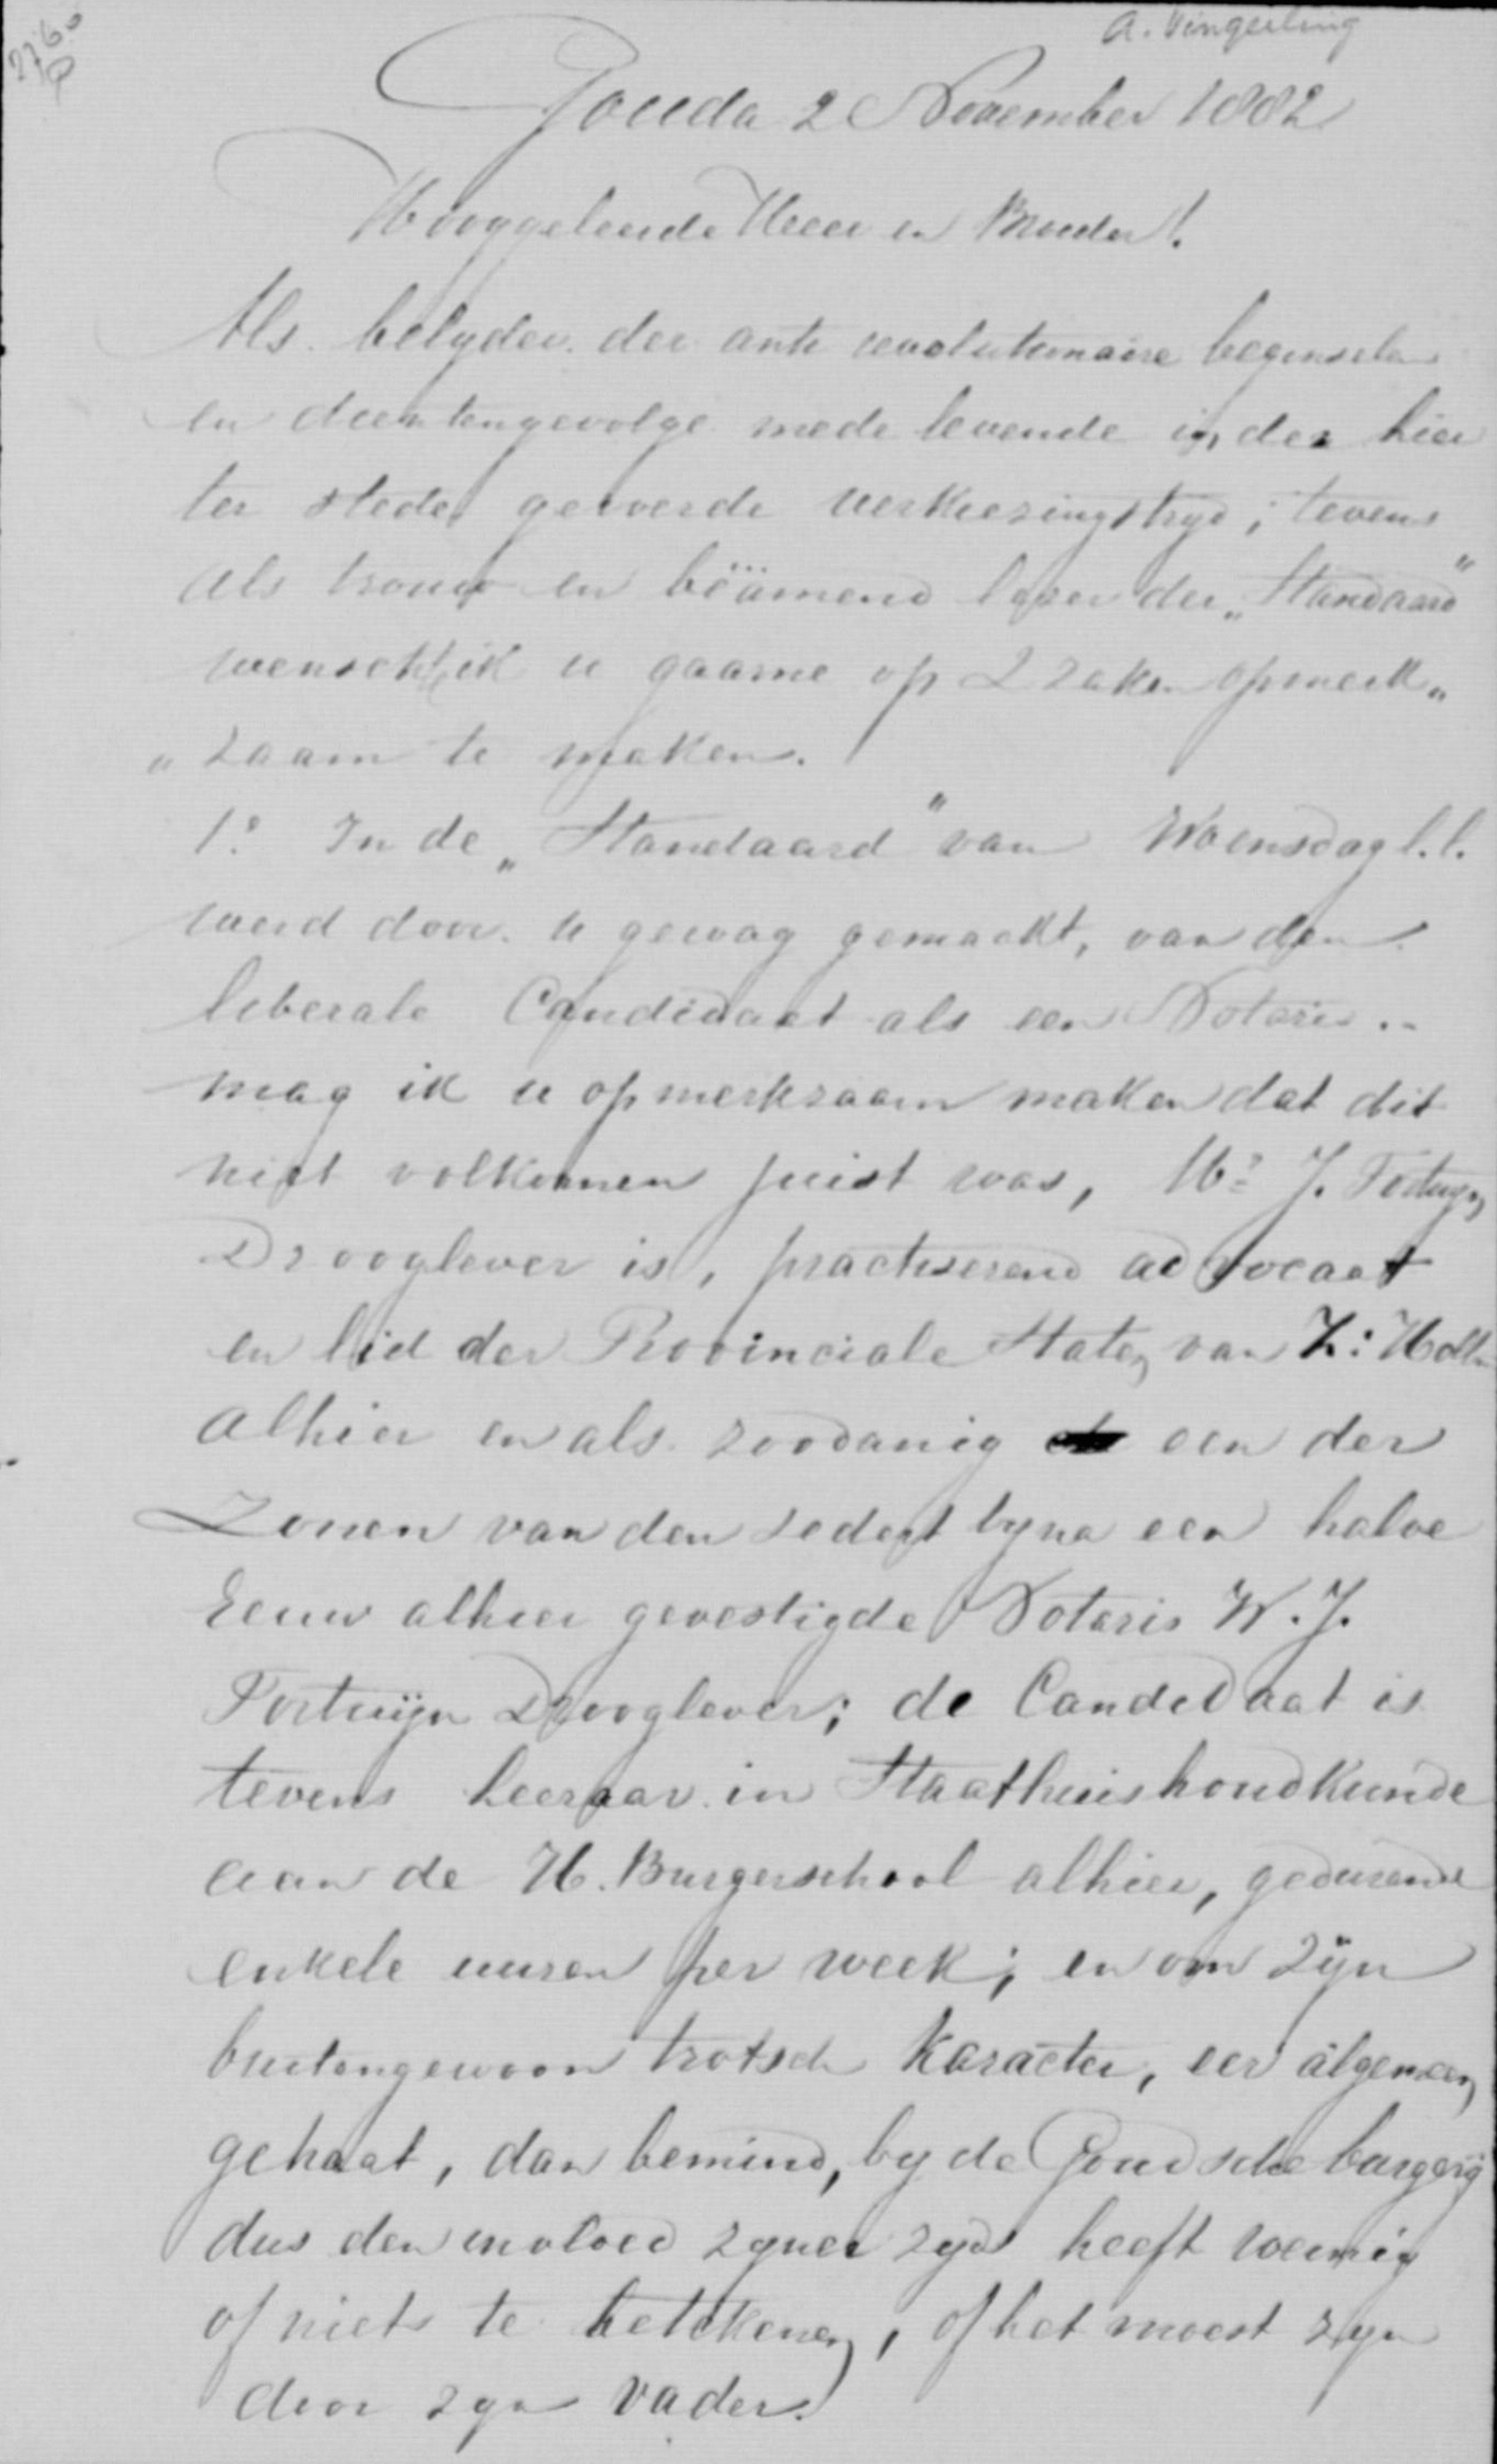 A. Vingerling
2760
Gouda 2 November 1882
Hooggeleerde Heer en Broeder!
Als belyder der anti revolutionaire beginselen
en dientengevolge mede levende in den hier
ter stede gevoerde verkiezingstryd; tevens
als trouw en beämend lezer der „Standaard"
wensch ik u gaarne op 2 zaken opmerk„
„zaam te maken.
1º. In de „Standaard" van Woensdag l.l.
werd door u gewag gemaakt, van den
liberale Candidaat als een Notaris..
mag ik u opmerkzaam maken dat dit
niet volkomen juist was, Mr J. Fortuyn
Drooglever is, practiserend advocaat
en lid der Provinciale Staten van Z: Holl
alhier en als zoodanig een der
Zonen van den sedert byna een halve
Eeuw alhier gevestigde Notaris W. J.
Fortuijn Drooglever; de Candidaat is
tevens leeraar in Staathuishoudkunde
aan de H. Burgerschool alhier, gedurende
enkele uuren per week; en om zijn
buitengewoon trotsch Karacter, eer algemeen
gehaat, dan bemind, by de Goudsche burgerij
dus den invloed zyner zyds heeft weinig
of niets te beteekenen, of het moest zyn
door zyn vader.